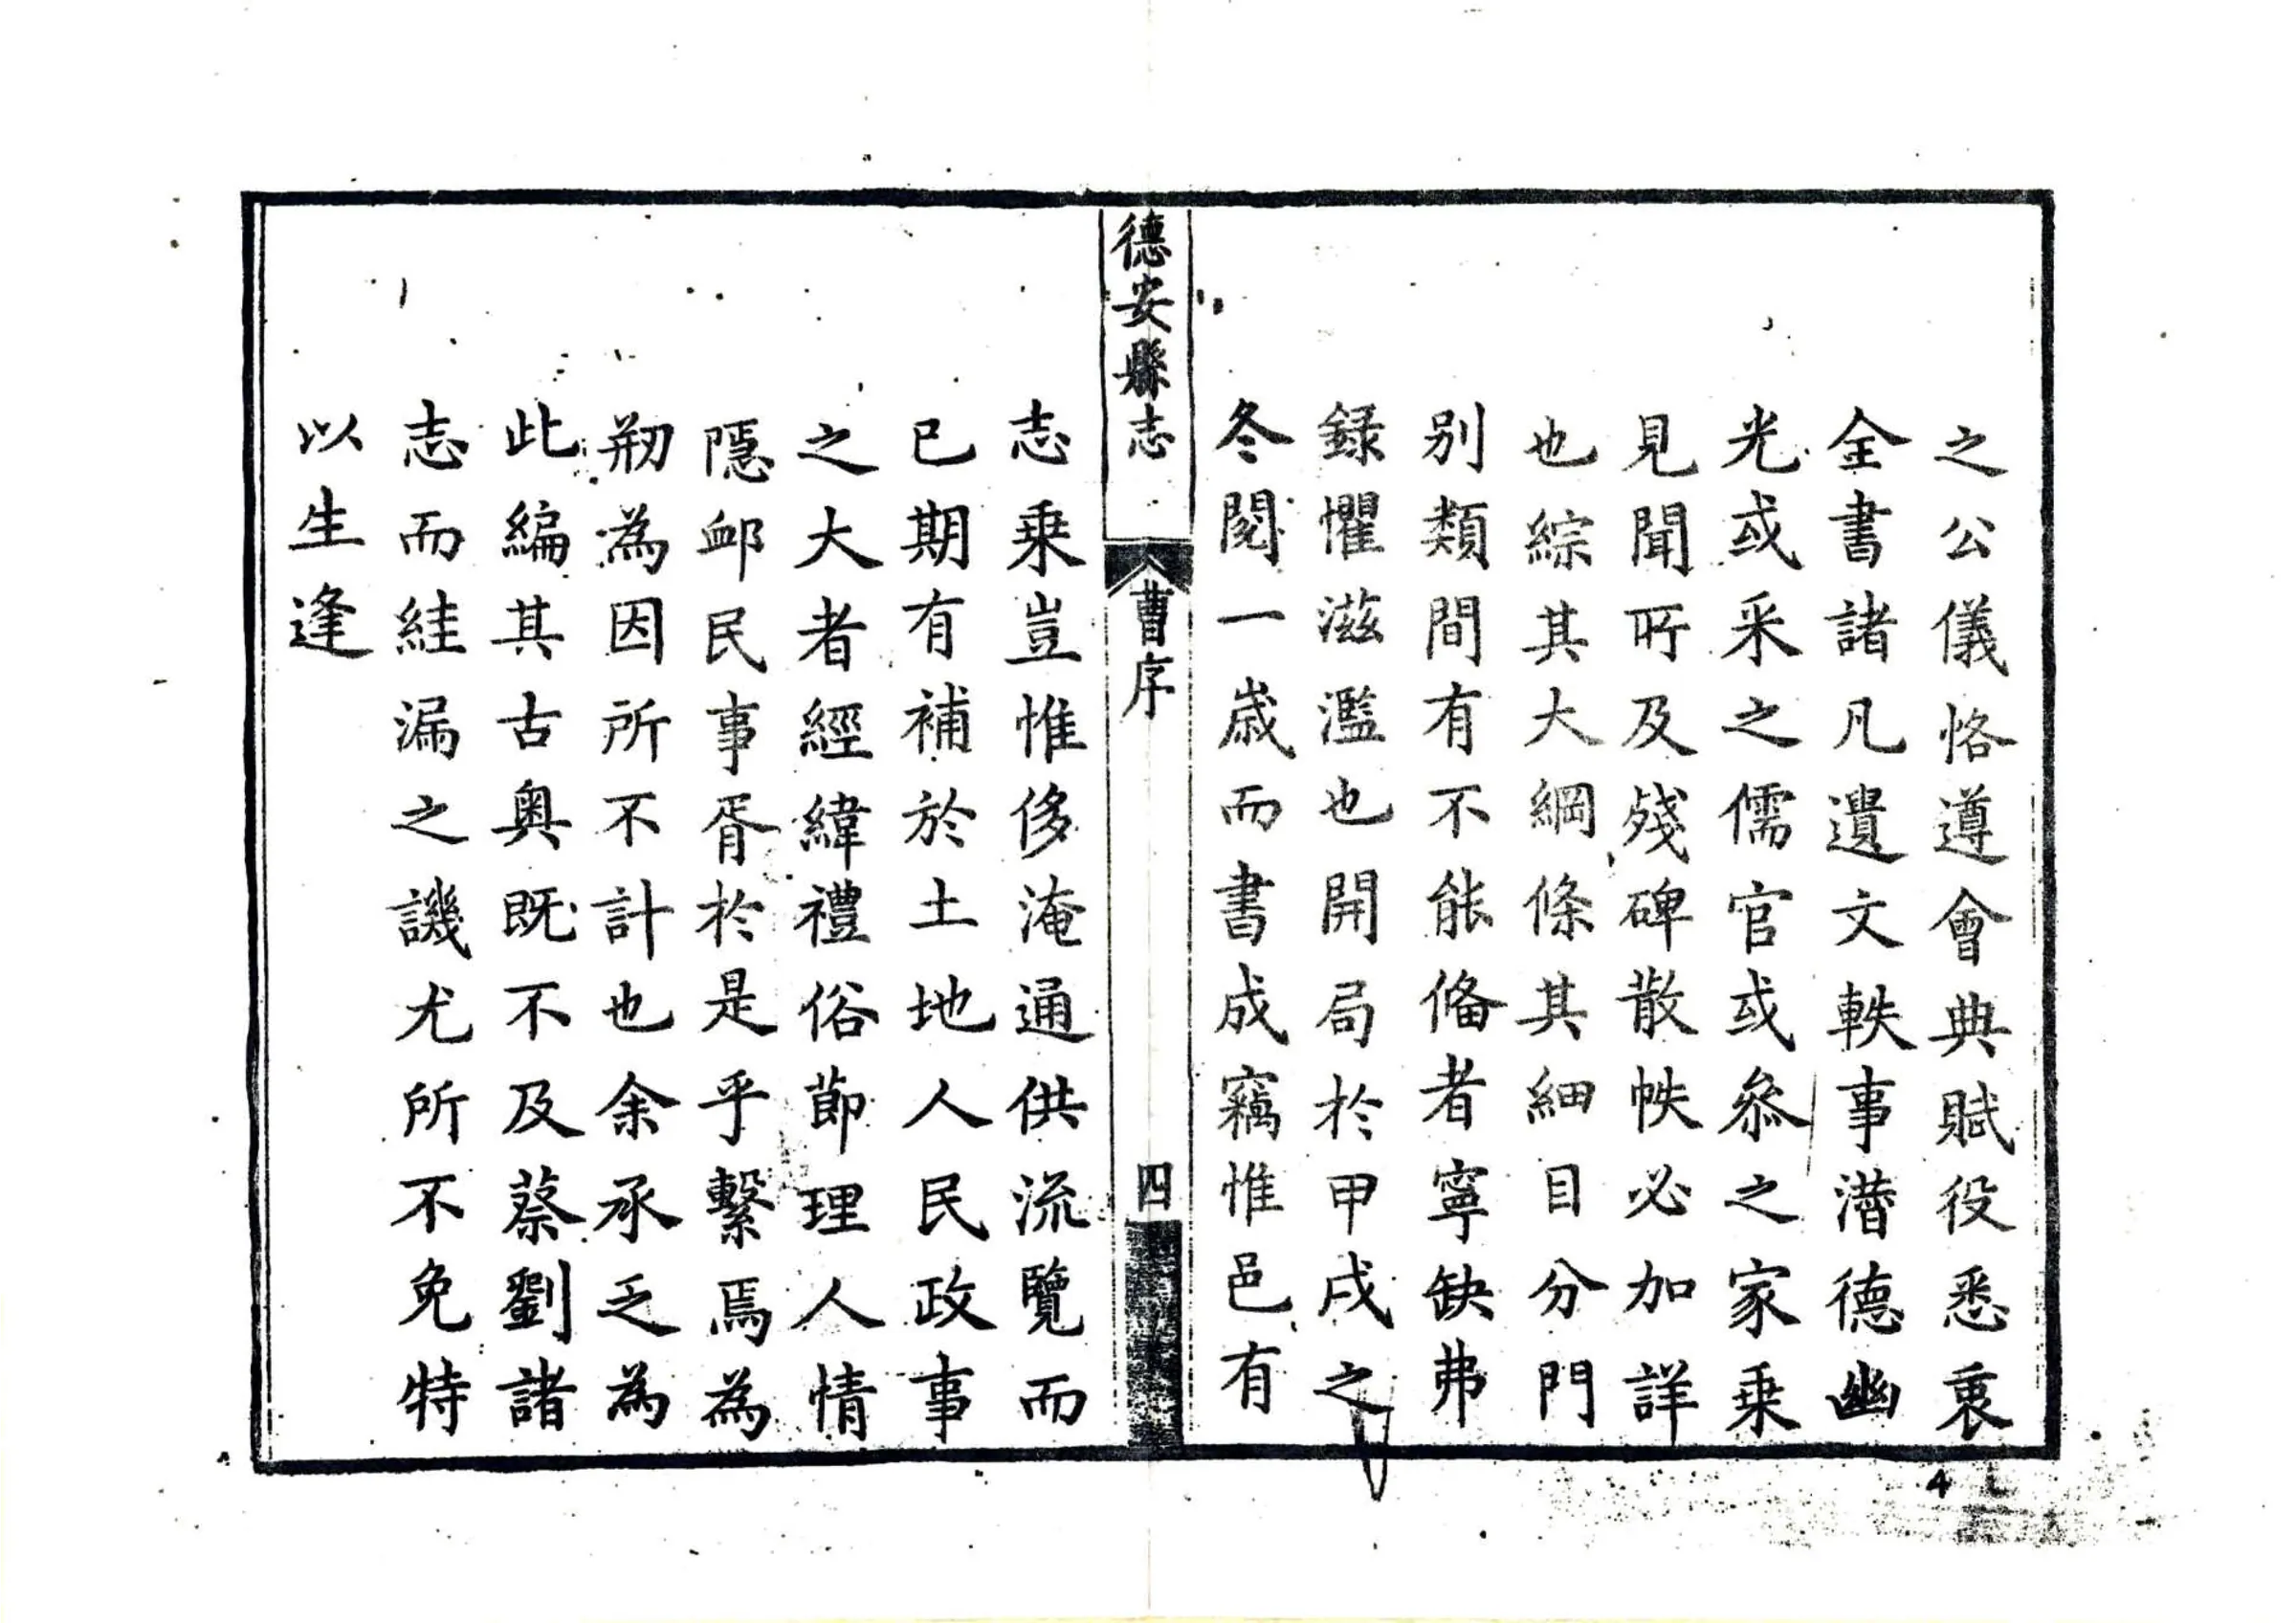 之公儀恪遵會典賦役悉衷
金書諸凡遺文軼事潛德幽
光或采之儒官或叅之家乗
見聞所及殘碑散帙必加詳
也綜其大綱條其細目分門
别類間有不能俻者寧缺弗
録懼滋濫也開局於甲戌之
冬閲一嵗而書成竊惟邑有
德安縣志
曹序
四
志乗豈惟侈淹通供流覽而
已期有補於土地人民政事
之大者經緯禮俗節理人情
隱邺民事胥於是乎繫焉為
剏為因所不計也余承乏為
此編其古奥既不及蔡劉諸
志而絓漏之譏尤所不免特
以生逢
4